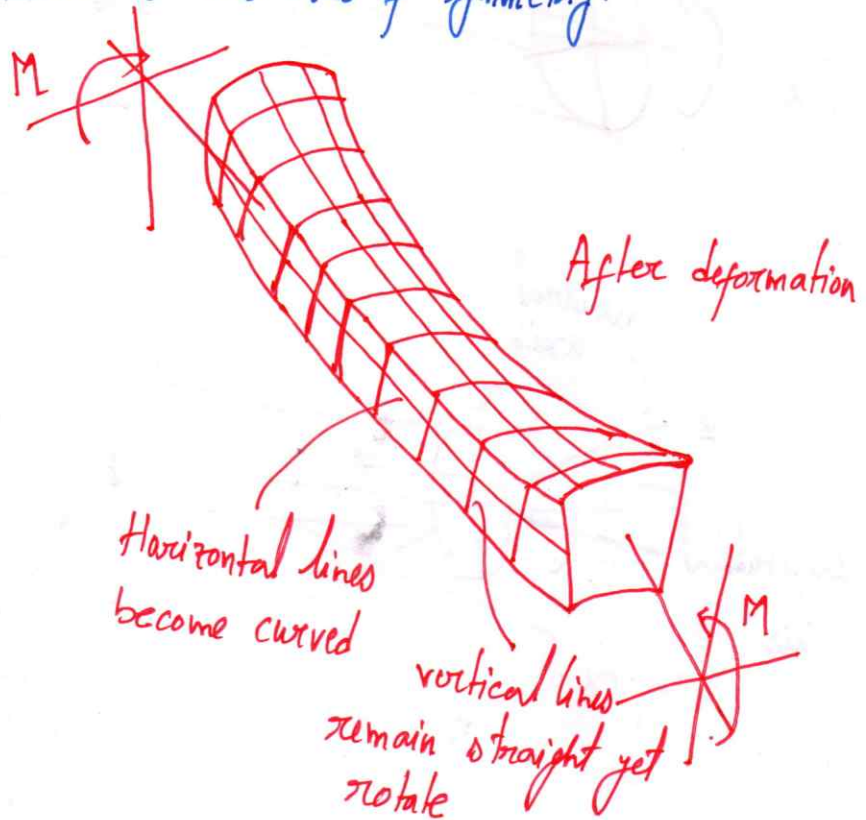 of symmetry.
M
After deformation
Horizontal lines
become curved
M
vertical lines
remain straight yet
rotate